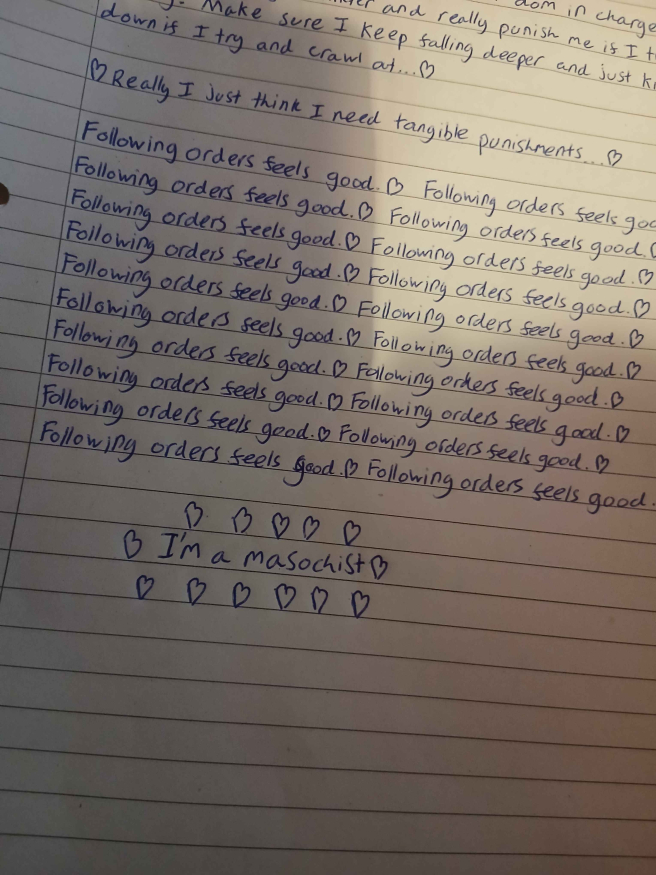 Make sure I keep falling deeper and just
and really punish me is I
dom in charge
down if I try and crawl at...♡
♡Really I just think I need tangible punishments...♡
Following orders feels good.♡ Following orders feels
Following orders feels good.♡ Following orders feels good.
Following orders feels good.♡ Following orders feels good.♡
Following orders feels good.♡ Following orders feels good.♡
Following orders feels good.♡ Following orders feels good.♡
Following orders feels good.♡ Following orders feels good.♡
Following orders feels good.♡ Following orders feels good.♡
Following orders feels good.♡ Following orders feels good.♡
Following orders feels good.♡ Following orders feels good.♡
Following orders feels good.♡ Following orders feels good.
♡ ♡ ♡ ♡ ♡
♡ I'm a masochist♡
♡ ♡ ♡ ♡ ♡ ♡